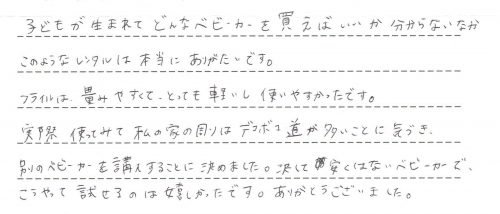 子どもが生まれてどんなベビーカーを買えばいいか分からないなか
このようなレンタルは本当にありがたいです。
フライルは、畳みやすくて、とっても軽いし使いやすかったです。
実際使ってみて私の家の周りはデコボコ道が多いことに気づき、
別のベビーカーを購入することに決めました。決して安くはないベビーカーで、
こうやって試せるのは嬉しかったです。ありがとうございました。